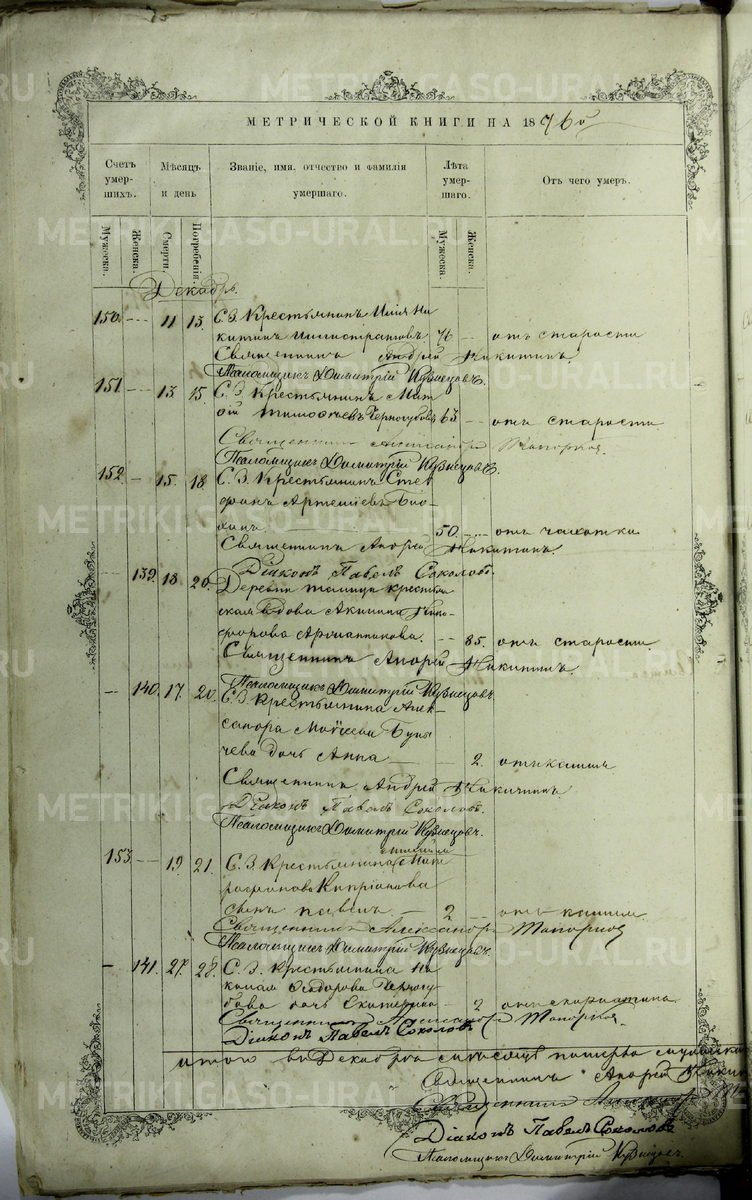 METRIKI.GASO-URAL.RU
МЕТРИЧЕСКОЙ КНИГИ НА 1876 г
Счетъ умершихъ.
Мѣсяцъ и день
Званіе, имя, отчество и фамилія умершаго.
Лѣта умершаго.
Отъ чего умеръ.
Мужеска. Женска. Смерти. Погребенія. Мужеска. Женска.
Декабрь.
150. — 11 13. С. З. Крестьянинъ Илія Ни
китинъ 76 — отъ старости
Священникъ Андрей Никитинъ.
Псаломщикъ Димитрій Кузнецовъ.
151. — 13 15. С. З. Крестьянинъ Мат
ѳій Тимоѳеевъ Черногубовъ 63 — отъ старости
Священникъ Александръ Топорковъ.
Псаломщикъ Димитрій Кузнецовъ.
152. — 15. 18. С. З. Крестьянинъ Сте
фанъ Артеміевъ
50. — отъ чахотки
Священникъ Андрей Никитинъ.
Діаконъ Павелъ Соколовъ.
— 139. 18. 20. Деревни Талица крестья
ская вдова Акилина Ники
форова — 85. отъ старости
Священникъ Андрей Никитинъ.
Псаломщикъ Димитрій Кузнецовъ.
— 140. 17. 20. С. З. Крестьянина Алек
сандра Моѵсеева Буны
чева дочь Анна — 2. отъ кашля
Священникъ Андрей Никитинъ
Діаконъ Павелъ Соколовъ.
Псаломщикъ Димитрій Кузнецовъ.
153. — 19. 21. С. З. Крестьянина
Кипріанова
сынъ Павелъ — 2 — отъ кашля
Священникъ Александръ Топорковъ
Псаломщикъ Димитрій Кузнецовъ.
— 141. 27. 28. С. З. Крестьянина Ни
колая Ѳедорова Черногу
бова дочь Екатерина — 2 отъ скарлатина
Священникъ Александръ Топорковъ.
Діаконъ Павелъ Соколовъ
Итого въ Декабрѣ мѣсяцѣ
Священникъ Андрей Никитинъ
Священникъ Александръ
Діаконъ Павелъ Соколовъ
Псаломщикъ Димитрій Кузнецовъ.